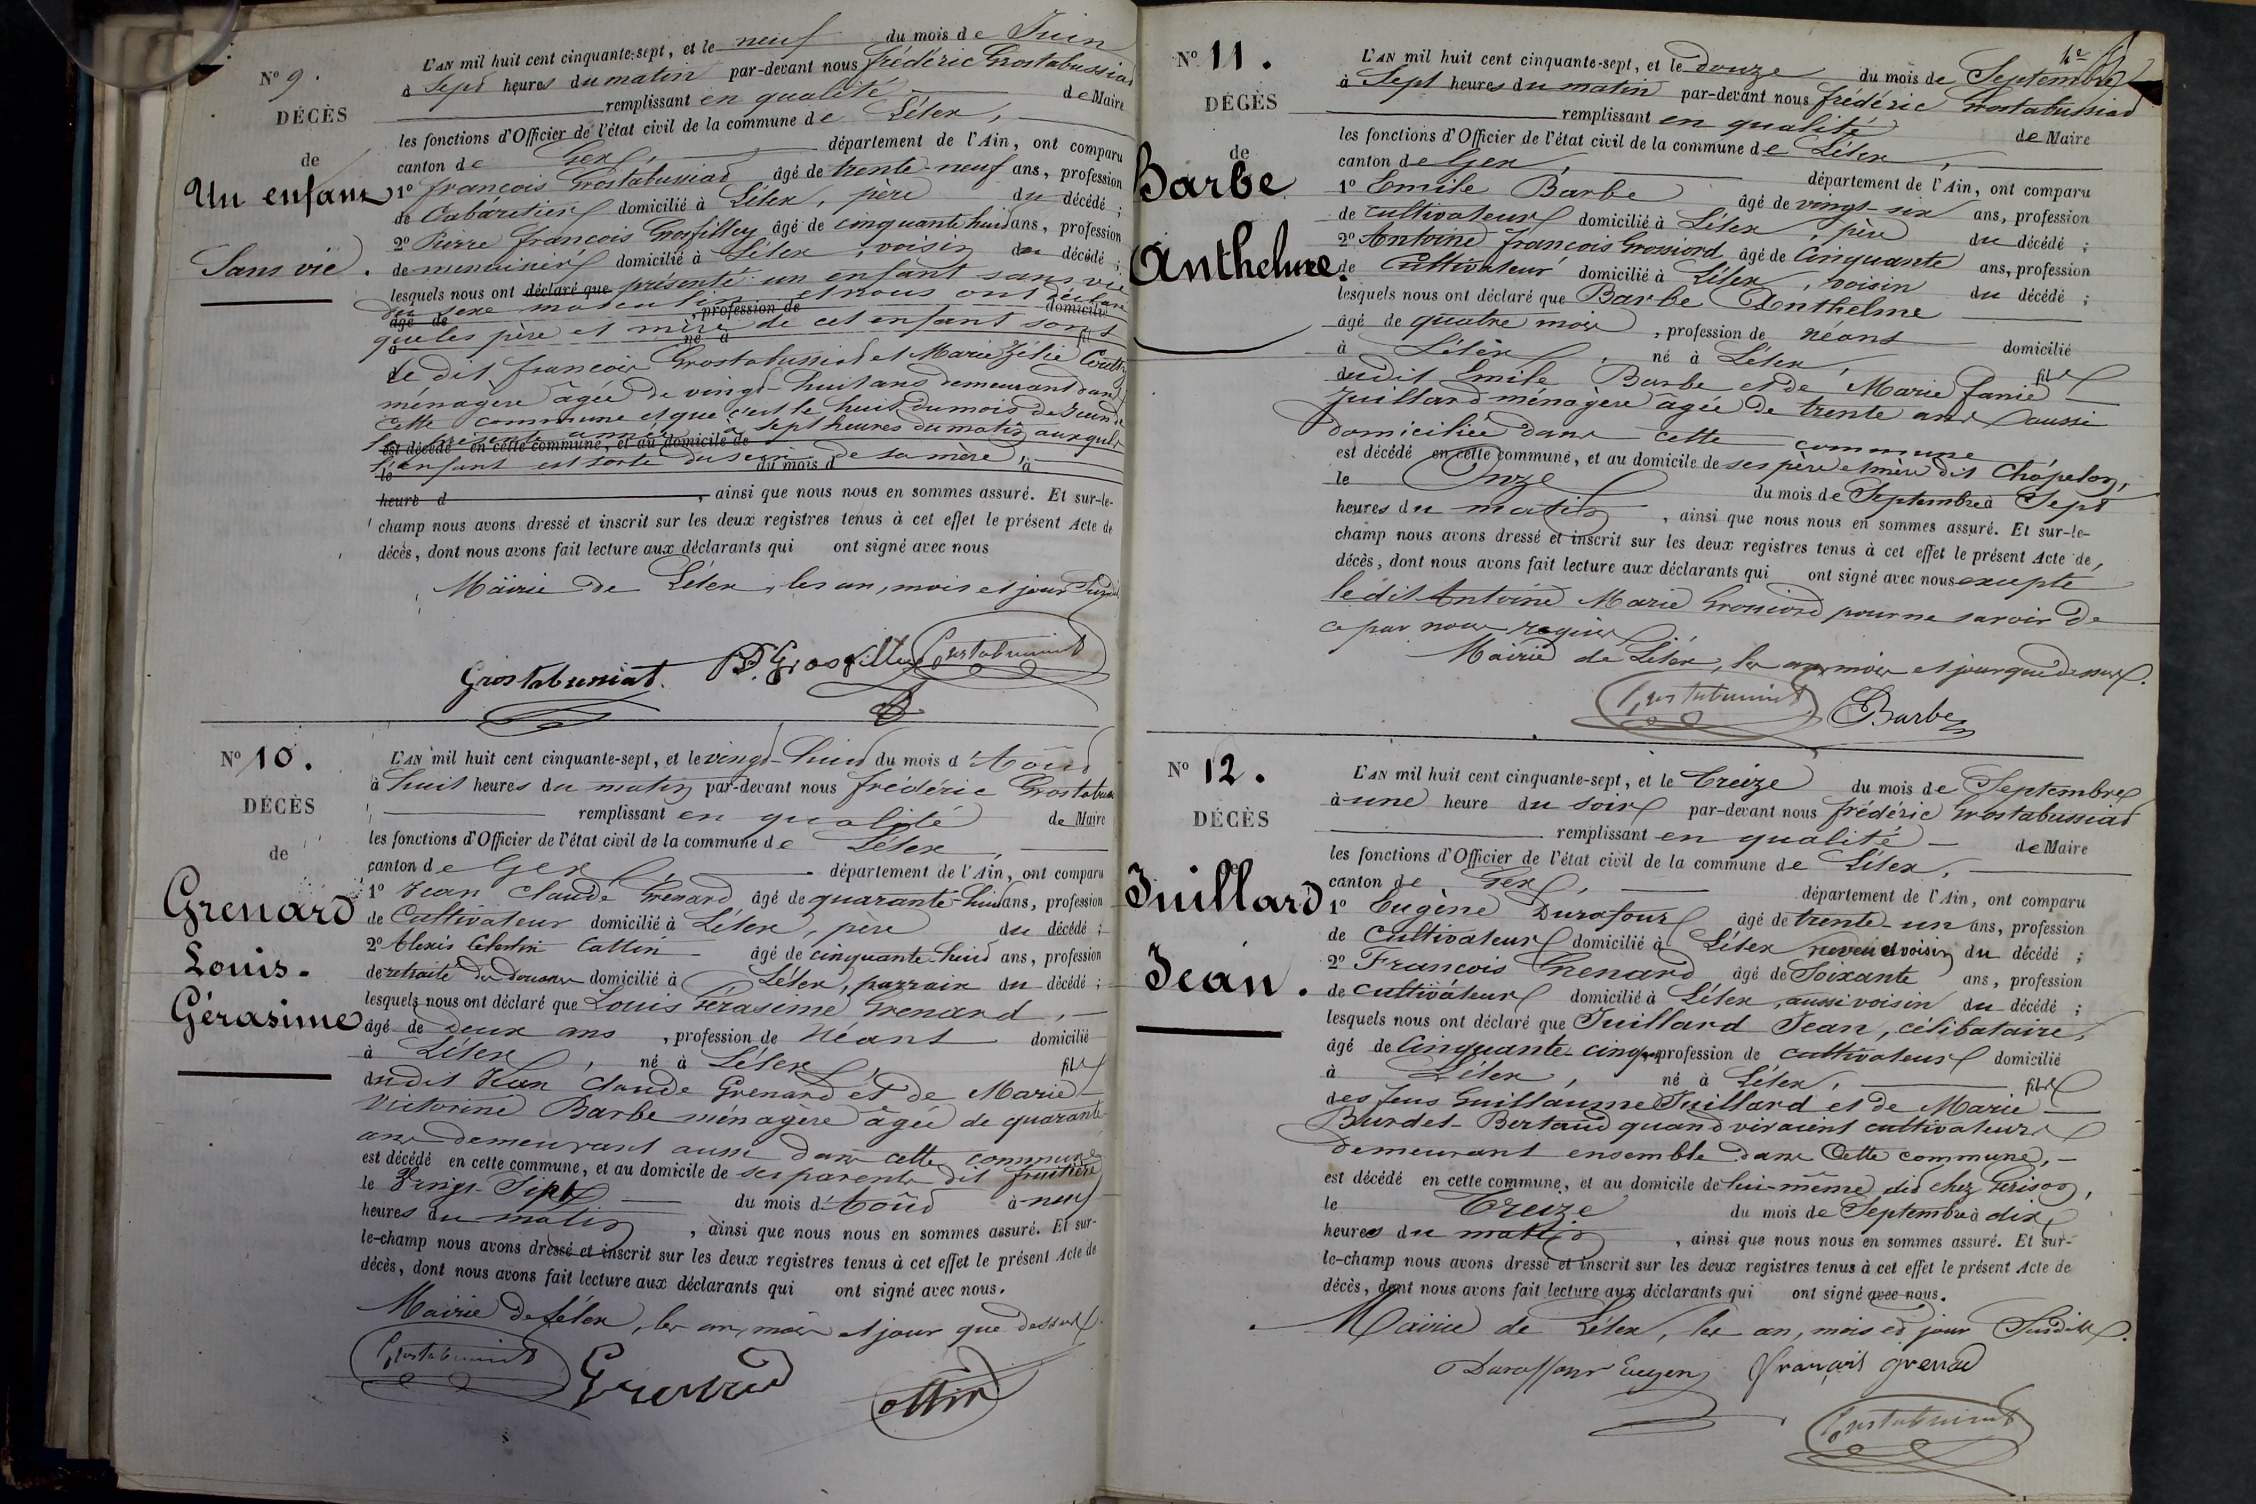 N° 9.
DÉCÈS
de
Un enfant
Sans vie.
L'AN mil huit cent cinquante-sept, et le neuf du mois de Juin
à Sept heures du matin par-devant nous frédéric Grostabussiat
remplissant en qualité de Maire
les fonctions d'Officier de l'état civil de la commune de Lélex,
canton de Gex, département de l'Ain, ont comparu
1° françois Grostabussiat âgé de trente-neuf ans, profession
de Cabaretier domicilié à Lélex, père du décédé ;
2° Pierre françois Grosfilley âgé de cinquante huit ans, profession
de menuisier domicilié à Lélex, voisin du décédé ;
lesquels nous ont déclaré que présenté un enfant sans vie
du sexe masculin et nous ont déclaré
âgé de , profession de domicilié
que les père et mère de cet enfant sont
à né à fil
le dit françois Grostabussiat et Marie Zélie
ménagère âgée de vingt-huit ans demeurant dans
cette commune et que c'est le huit du mois de Juin de
la présente année à sept heures du matin auxquels
est décédé en cette commune, et au domicile de
l'enfant est sorti du sein de sa mère,
le du mois d à
heure d , ainsi que nous nous en sommes assuré. Et sur-le-
champ nous avons dressé et inscrit sur les deux registres tenus à cet effet le présent Acte de
décès, dont nous avons fait lecture aux déclarants qui ont signé avec nous
Mairie de Lélex, les an, mois et jour Susdit
Grostabussiat. P.F. Grosfilley Grostabussiat
N° 10.
DÉCÈS
de
Grenard
Louis.
Gérasime
L'AN mil huit cent cinquante-sept, et le vingt-huit du mois d'Août
à huit heures du matin par-devant nous frédéric Grostabussiat
remplissant en qualité de Maire
les fonctions d'Officier de l'état civil de la commune de Lélex,
canton de Gex, département de l'Ain, ont comparu
1° Jean Claude Grenard âgé de quarante-huit ans, profession
de Cultivateur domicilié à Lélex, père du décédé ;
2° Alexis Célestin Cattin âgé de cinquante-huit ans, profession
de retraité des douanes domicilié à Lélex, parrain du décédé ;
lesquels nous ont déclaré que Louis Gérasime Grenard,
âgé de deux ans, profession de Néant domicilié
à Lélex, né à Lélex, fils
dudit Jean Claude Grenard et de Marie
Victorine Barbe ménagère âgée de quarante
ans demeurant aussi dans cette commune
est décédé en cette commune, et au domicile de ses parents dit fruitière
le Vingt-Sept du mois d'Août à neuf
heures du matin, ainsi que nous nous en sommes assuré. Et sur-
le-champ nous avons dressé et inscrit sur les deux registres tenus à cet effet le présent Acte de
décès, dont nous avons fait lecture aux déclarants qui ont signé avec nous.
Mairie de Lélex, les an, mois et jour que dessus.
Grostabussiat Grenard Cattin
N° 11.
DÉCÈS
de
Barbe
Anthelme.
L'AN mil huit cent cinquante-sept, et le douze du mois de Septembre
à Sept heures du matin par-devant nous frédéric Grostabussiat
remplissant en qualité de Maire
les fonctions d'Officier de l'état civil de la commune de Lélex,
canton de Gex, département de l'Ain, ont comparu
1° Emile Barbe âgé de vingt-six ans, profession
de cultivateur domicilié à Lélex, père du décédé ;
2° Antoine François Grossiord âgé de Cinquante ans, profession
de Cultivateur domicilié à Lélex, voisin du décédé ;
lesquels nous ont déclaré que Barbe Anthelme
âgé de quatre mois, profession de néant domicilié
à Lélex, né à Lélex, fils
dudit Emile Barbe et de Marie fanie
juillard ménagère âgée de trente ans aussi
domiciliée dans cette commune
est décédé en cette commune, et au domicile de ses père et mère dit Chapelon,
le Onze du mois de Septembre à Sept
heures du matin, ainsi que nous nous en sommes assuré. Et sur-le-
champ nous avons dressé et inscrit sur les deux registres tenus à cet effet le présent Acte de
décès, dont nous avons fait lecture aux déclarants qui ont signé avec nous excepté
le dit Antoine Marie Grossiord pour ne savoir de
ce par nous requis
Mairie de Lélex, les an, mois et jour que dessus.
Grostabussiat Barbe
N° 12.
DÉCÈS
de
Juillard
Jean.
L'AN mil huit cent cinquante-sept, et le Treize du mois de Septembre
à une heure du soir par-devant nous frédéric Grostabussiat
remplissant en qualité de Maire
les fonctions d'Officier de l'état civil de la commune de Lélex,
canton de Gex, département de l'Ain, ont comparu
1° Eugène Durafour âgé de trente-un ans, profession
de Cultivateur domicilié à Lélex neveu et voisin du décédé ;
2° François Grenard âgé de Soixante ans, profession
de cultivateur domicilié à Lélex, aussi voisin du décédé ;
lesquels nous ont déclaré que Juillard Jean, célibataire,
âgé de Cinquante-cinq ans profession de cultivateur domicilié
à Lélex, né à Lélex, fils
des feus Guillaume Juillard et de Marie
Burdet-Bertaud quand vivaient cultivateurs
demeurant ensemble dans Cette commune,
est décédé en cette commune, et au domicile de lui-même dit chez Grison,
le Treize du mois de Septembre à dix
heures du matin, ainsi que nous nous en sommes assuré. Et sur-
le-champ nous avons dressé et inscrit sur les deux registres tenus à cet effet le présent Acte de
décès, dont nous avons fait lecture aux déclarants qui ont signé avec nous.
Mairie de Lélex, les an, mois et jour Susdits.
Duraffour Eugen françois grenard
Grostabussiat